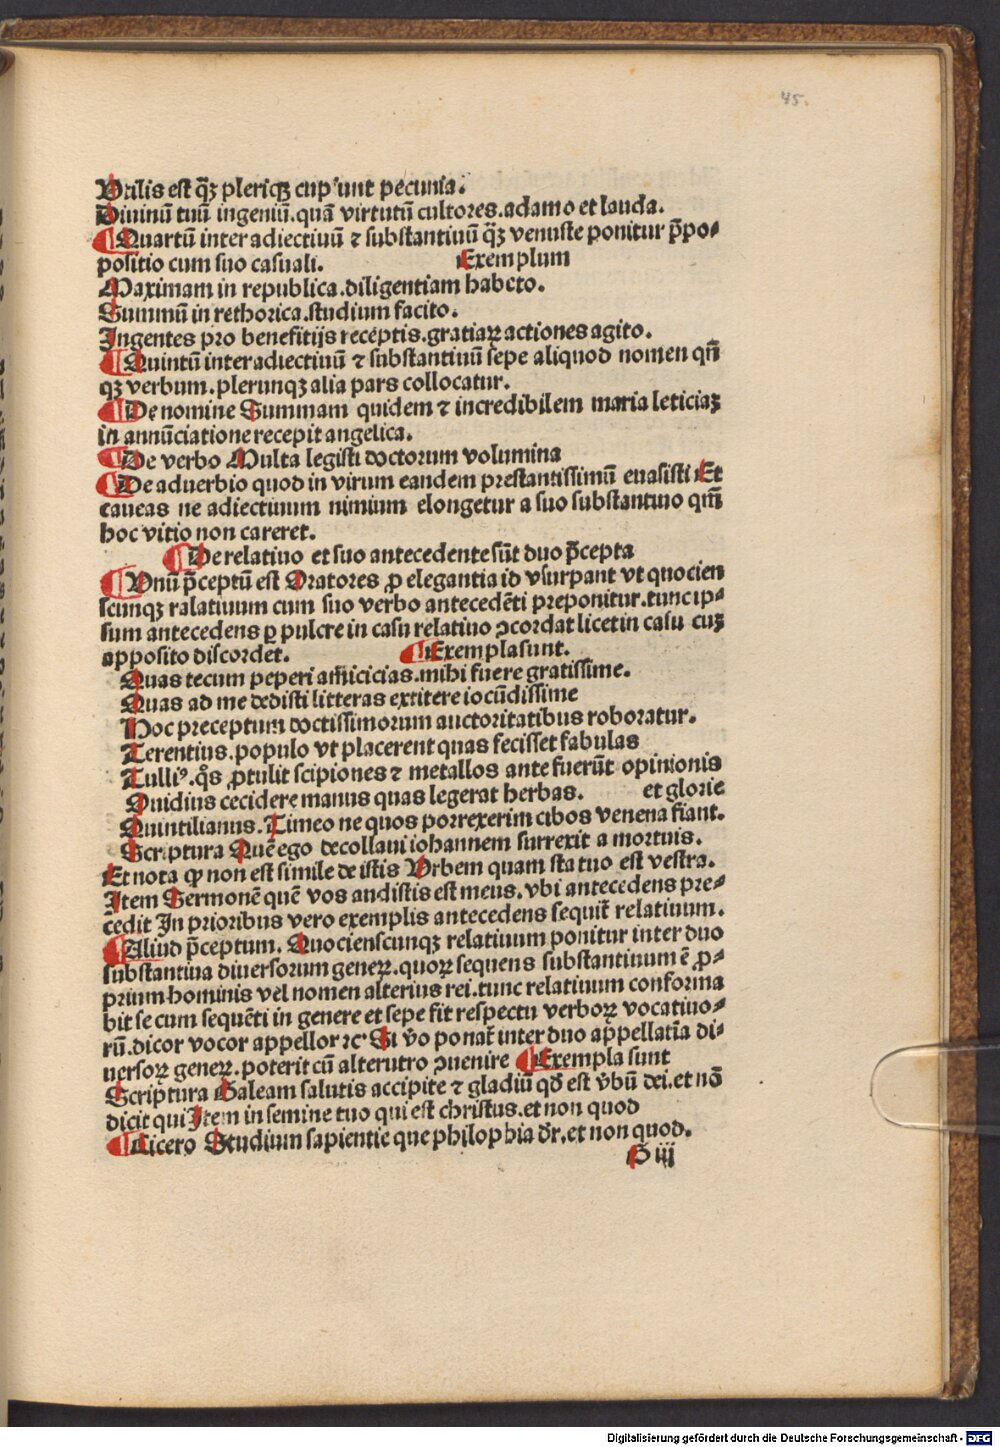 45.
Utilis est q̄ꝫ pleriqꝫ cup'unt pecunia.
Diuinū tuū ingeniū.quā virtutū cultores.adamo et lauda.
¶ Quartū inter adiectiuū ⁊ substantiuū q̄ꝫ venuste ponitur p̄po⸗
positio cum suo casuali. Exemplum
Maximam in republica.diligentiam habeto.
Summū in rethorica.studium facito.
Ingentes pro benefitijs receptis.gratiaꝝ actiones agito.
¶ Quintū inter adiectiuū ⁊ substantiuū sepe aliquod nomen qn̄
qꝫ verbum.plerunqꝫ alia pars collocatur.
¶ De nomine Summam quidem ⁊ incredibilem maria leticiaꝫ
in annūciatione recepit angelica.
¶ De verbo Multa legisti doctorum volumina
¶ De aduerbio quod in virum eandem prestantissimū euasisti Et
caueas ne adiectiuum nimium elongetur a suo substantiuo qm̄
hoc vitio non careret.
¶ De relatiuo et suo antecedente sūt duo p̄cepta
¶ Unū p̄ceptū est Oratores ꝓ elegantia id vsurpant vt quocien
scunqꝫ ralatiuum cum suo verbo antecedēti preponitur.tunc ip⸗
sum antecedens ꝑ pulcre in casu relatiuo ꝯcordat licet in casu cuꝫ
apposito discordet. ¶ Exempla sunt.
Quas tecum peperi amicicias.mihi fuere gratissime.
Quas ad me dedisti litteras extitere iocūdissime
Hoc preceptum doctissimorum auctoritatibus roboratur.
Terentius.populo vt placerent quas fecisset fabulas
Tulliꝰ.q̄s ꝓtulit scipiones ⁊ metallos ante fuerūt opinionis
Ouidius cecidere manus quas legerat herbas. et glorie
Quintilianus.Timeo ne quos porrexerim cibos venena fiant.
Scriptura Quē ego decollaui iohannem surrexit a mortuis.
Et nota ꝙ non est simile de istis Urbem quam statuo est vestra.
Item Sermonē quē vos audistis est meus.vbi antecedens pre⸗
cedit In prioribus vero exemplis antecedens sequit̄ relatiuum.
¶ Aliud p̄ceptum. Quocienscunqꝫ relatiuum ponitur inter duo
substantiua diuersorum geneꝝ.quoꝝ sequens substantiuum ē ꝓ⸗
prium hominis vel nomen alterius rei.tunc relatiuum conforma
bit se cum sequēti in genere et sepe fit respectu verboꝝ vocatiuo⸗
rū.dicor vocor appellor ⁊c̄ Si v̄o ponat̄ inter duo appellatīa di⸗
uersoꝝ geneꝝ.poterit cū alterutro ꝯuenire ¶ Exempla sunt
Scriptura Galeam salutis accipite ⁊ gladiū qd̄ est v̄bū dei.et nō
dicit qui Item in semine tuo qui est christus.et non quod
¶ Cicero Studium sapientie que philophia dr̄.et non quod.
G iij
Digitalisierung gefördert durch die Deutsche Forschungsgemeinschaft - DFG